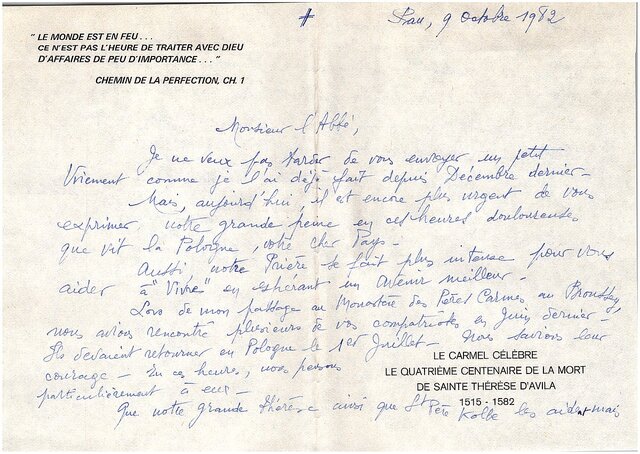 " LE MONDE EST EN FEU . . .
CE N'EST PAS L'HEURE DE TRAITER AVEC DIEU
D'AFFAIRES DE PEU D'IMPORTANCE . . . "
CHEMIN DE LA PERFECTION, CH. 1
9 Octobre 1982
Monsieur l'Abbé,
Je ne veux pas tarder de vous envoyer un petit
Virement comme je l'ai déjà fait depuis Décembre dernier -
Mais, aujourd'hui, il est encore plus urgent de vous
exprimer notre grande peine en ces heures douloureuses
que vit la Pologne, votre cher Pays -
Aussi notre Prière se fait plus intense pour vous
aider à "Vivre" en espérant un Avenir meilleur -
Lors de mon passage au Monastère des Pères Carmes au Broussey,
nous avions rencontré plusieurs de vos compatriotes en Juin dernier -
Ils devaient retourner en Pologne le 1er Juillet - Nous savions leur
courage - En ces heures, nous pensons
particulièrement à eux -
Que notre grande Thérèse ainsi que St Père Kolbe les aident mais
LE CARMEL CÉLÈBRE
LE QUATRIÈME CENTENAIRE DE LA MORT
DE SAINTE THÉRÈSE D'AVILA
1515 - 1582